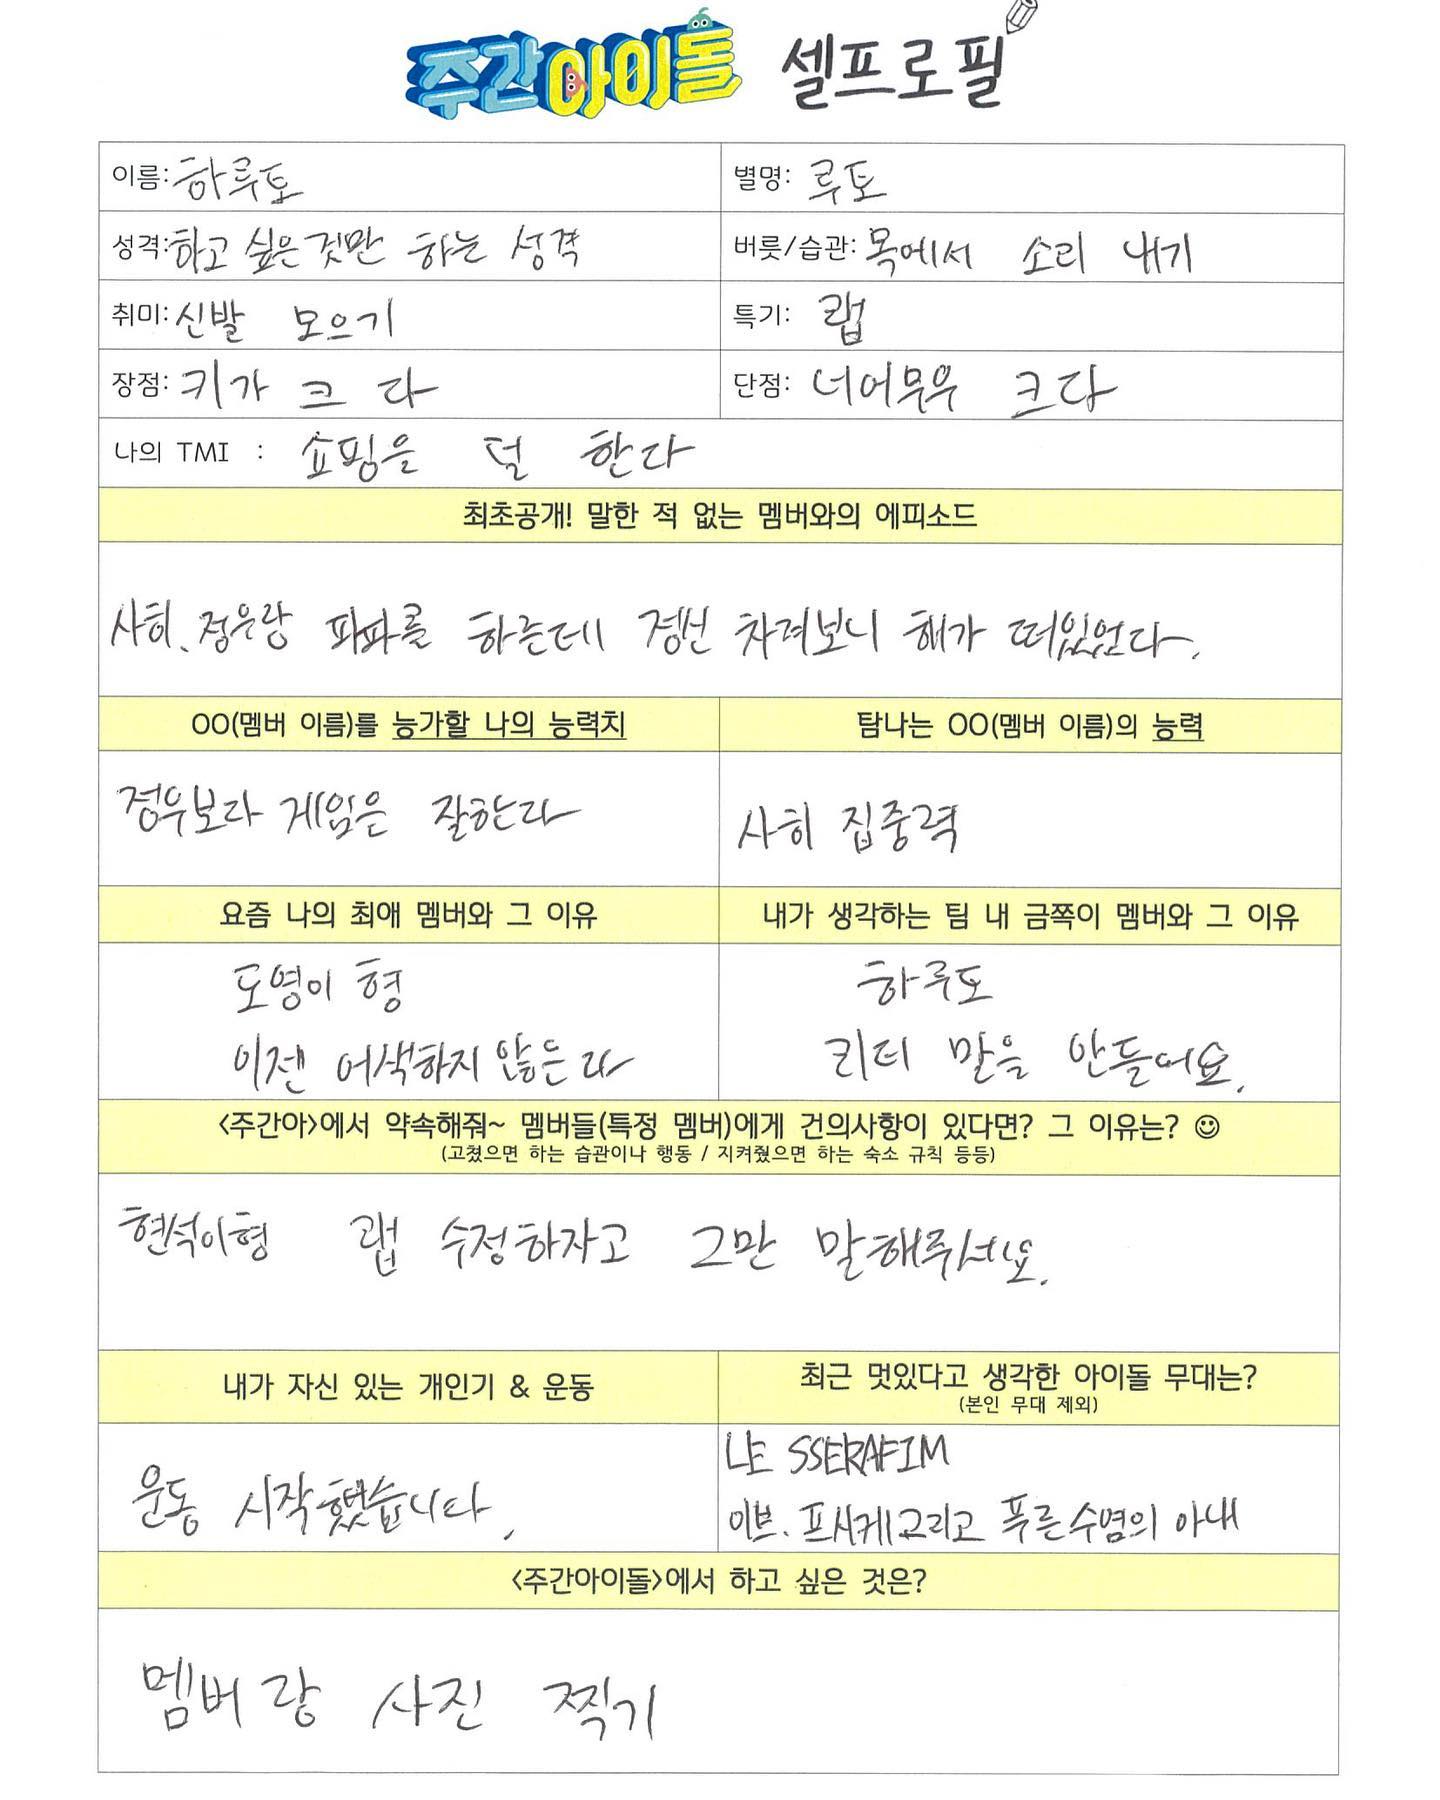 주간아이돌 셀프로필
이름: 하루토
별명: 루토
성격: 하고 싶은것만 하는 성격
버릇/습관: 목에서 소리 내기
취미: 신발 모으기
특기: 랩
장점: 키가 크 다
단점: 너어무우 크다
나의 TMI : 쇼핑을 덜 한다
최초공개! 말한 적 없는 멤버와의 에피소드
사히、정우랑 파파를 하는데 정신 차려보니 해가 떠있었다.
OO(멤버 이름)를 능가할 나의 능력치
탐나는 OO(멤버 이름)의 능력
정우보다 게임은 잘한다
사히 집중력
요즘 나의 최애 멤버와 그 이유
내가 생각하는 팀 내 금쪽이 멤버와 그 이유
도영이 형
이젠 어색하지 않은다
하루토
리더 말을 안들어요.
<주간아>에서 약속해줘~ 멤버들(특정 멤버)에게 건의사항이 있다면? 그 이유는? ☺
(고쳤으면 하는 습관이나 행동 / 지켜줬으면 하는 숙소 규칙 등등)
현석이형 랩 수정하자고 그만 말해주세요.
내가 자신 있는 개인기 & 운동
최근 멋있다고 생각한 아이돌 무대는?
(본인 무대 제외)
운동 시작했습니다.
LE SSERAFIM
이브. 프시케그리고 푸른수염의 아내
<주간아이돌>에서 하고 싶은 것은?
멤버랑 사진 찍기